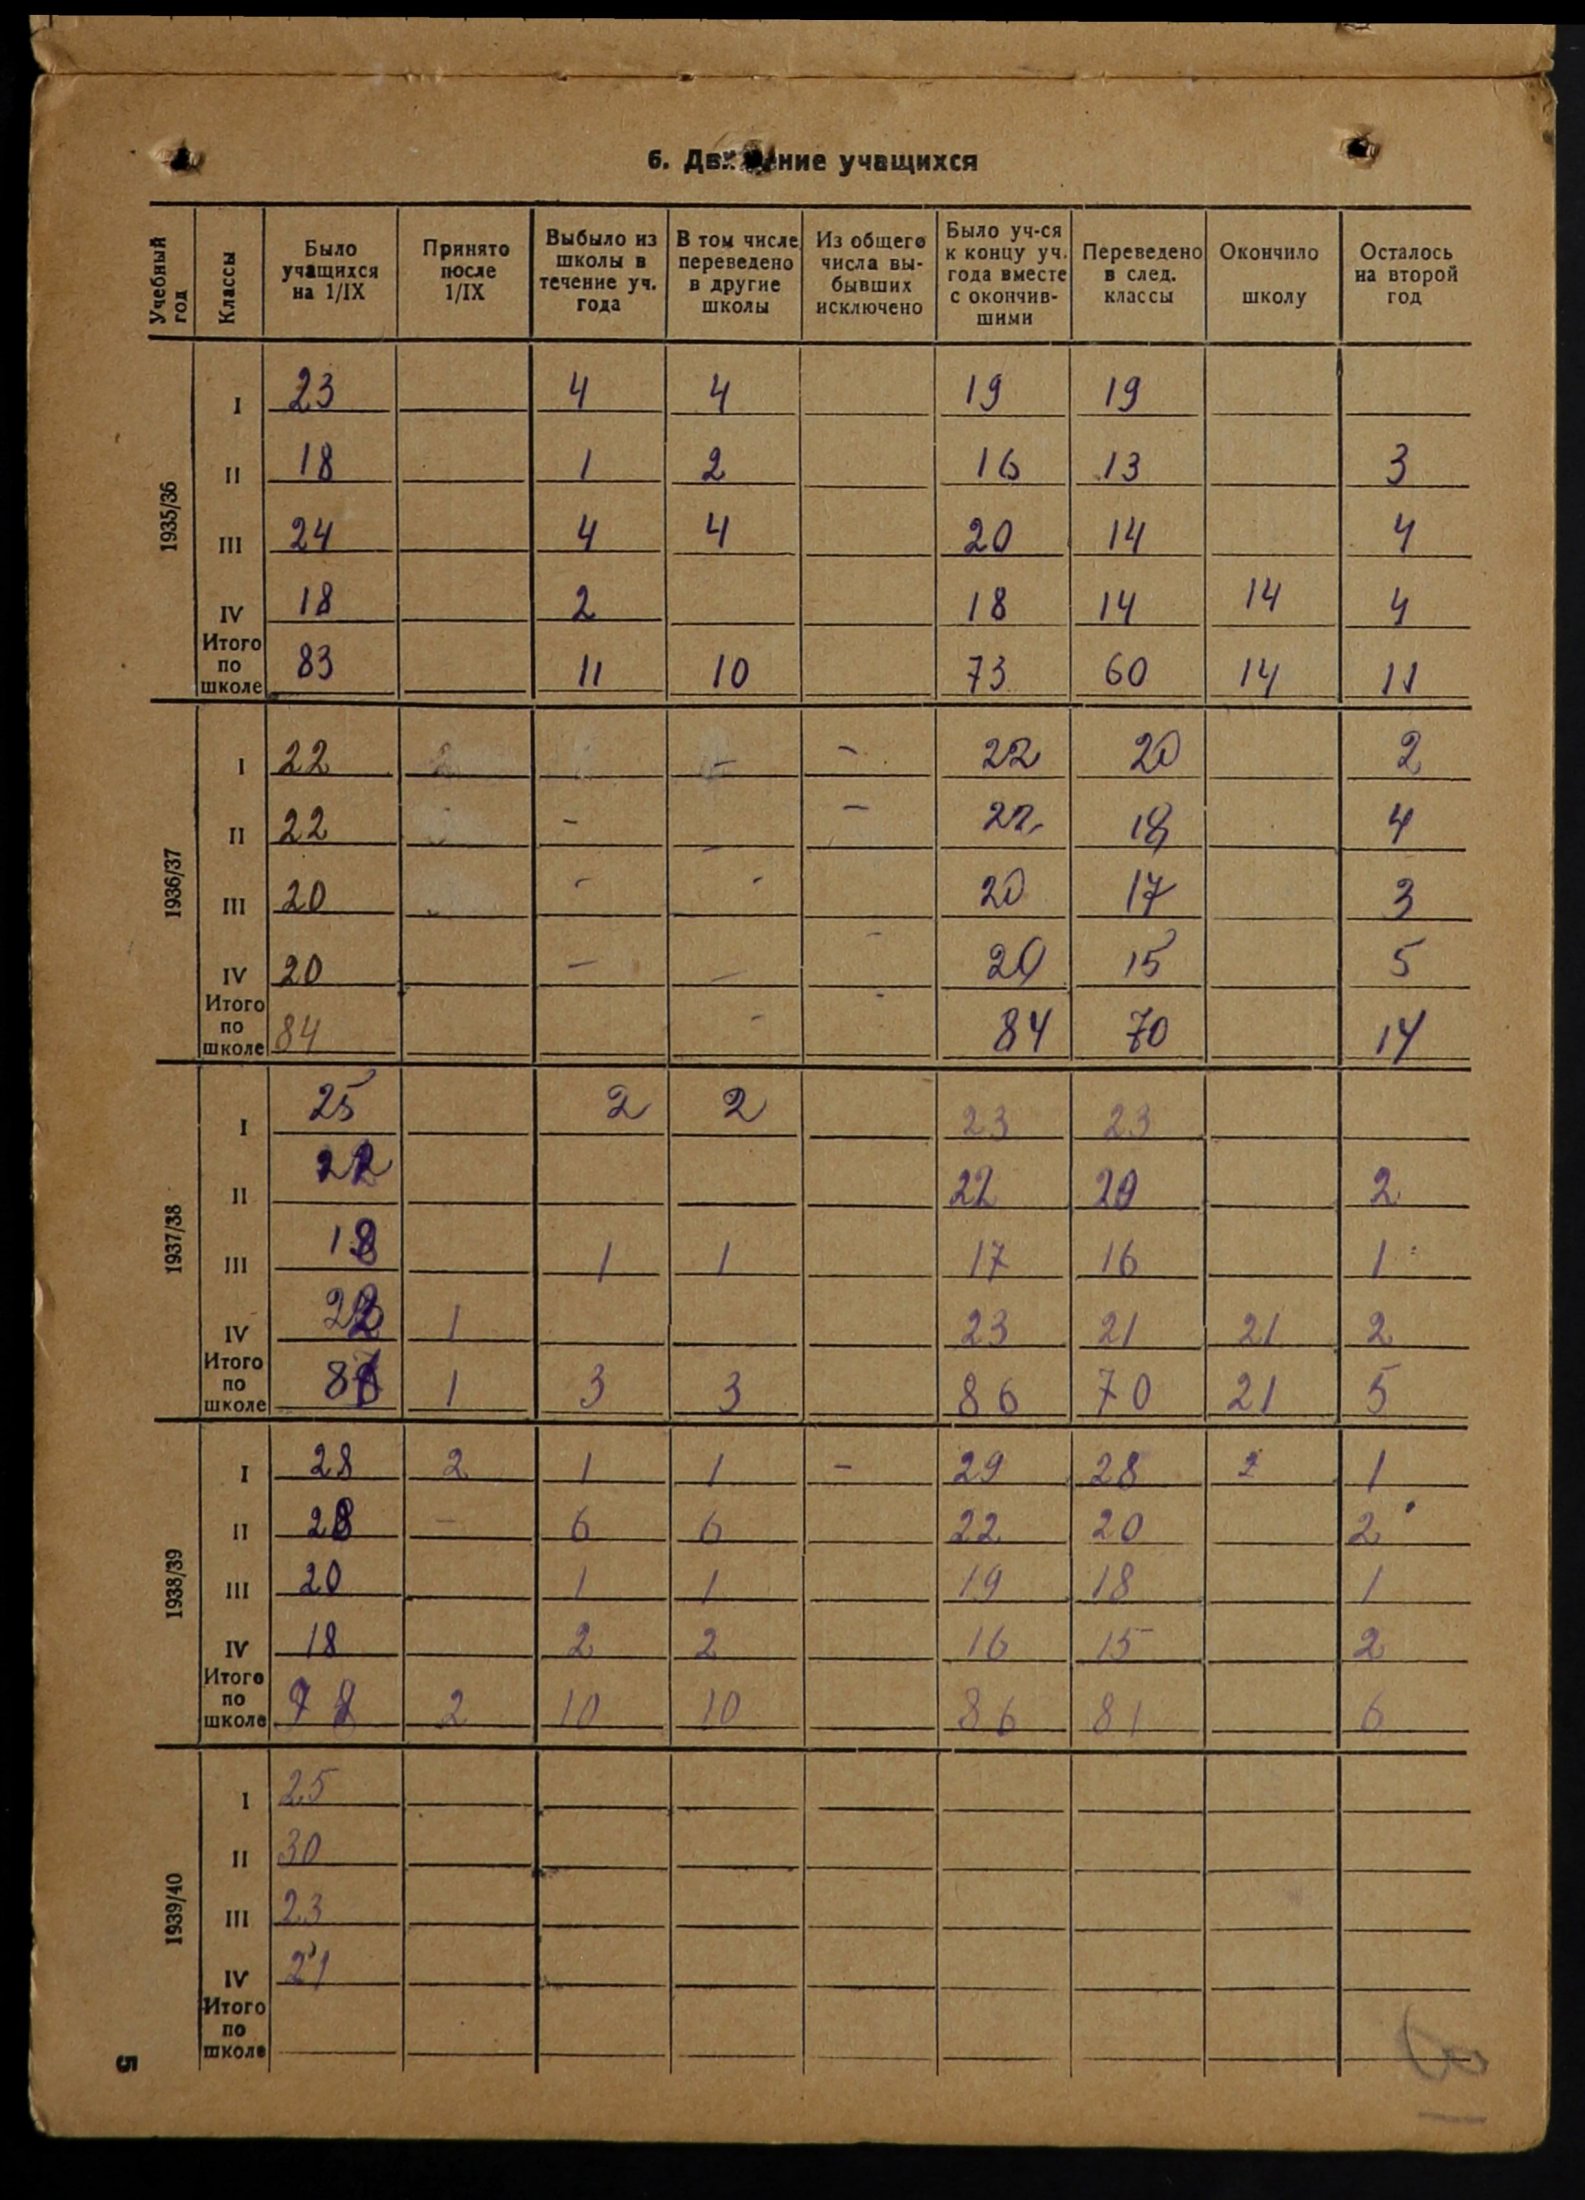 6. Движение учащихся
Учебный год | Классы | Было учащихся на 1/IX | Принято после 1/IX | Выбыло из школы в течение уч. года | В том числе переведено в другие школы | Из общего числа выбывших исключено | Было уч-ся к концу уч. года вместе с окончившими | Переведено в след. классы | Окончило школу | Осталось на второй год
1935/36
I | 23 | | 4 | 4 | | 19 | 19 | | |
II | 18 | | 1 | 2 | | 16 | 13 | | 3
III | 24 | | 4 | 4 | | 20 | 14 | | 4
IV | 18 | | 2 | | | 18 | 14 | 14 | 4
Итого по школе | 83 | | 11 | 10 | | 73 | 60 | 14 | 11
1936/37
I | 22 | | | – | – | 22 | 20 | | 2
II | 22 | | – | – | – | 22 | 18 | | 4
III | 20 | | – | – | – | 20 | 17 | | 3
IV | 20 | | – | – | – | 20 | 15 | | 5
Итого по школе | 84 | | | – | | 84 | 70 | | 14
1937/38
I | 25 | | 2 | 2 | | 23 | 23 | | |
II | 22 | | | | | 22 | 20 | | 2
III | 18 | | 1 | 1 | | 17 | 16 | | 1
IV | 22 | 1 | | | | 23 | 21 | 21 | 2
Итого по школе | | 1 | 3 | 3 | | 86 | 70 | 21 | 5
1938/39
I | 28 | 2 | 1 | 1 | – | 29 | 28 | | 1
II | 28 | – | 6 | 6 | | 22 | 20 | | 2
III | 20 | | 1 | 1 | | 19 | 18 | | 1
IV | 18 | | 2 | 2 | | 16 | 15 | | 2
Итого по школе | | 2 | 10 | 10 | | 86 | 81 | | 6
1939/40
I | 25
II | 30
III | 23
IV | 21
Итого по школе
5